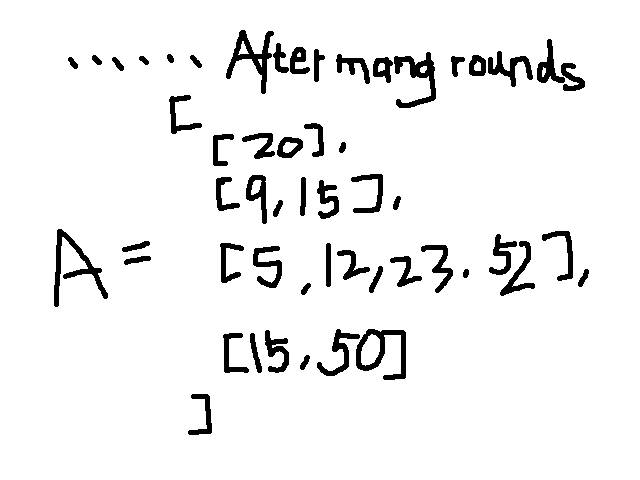 ...... After mang rounds
[
[20].
[9,15],
A = [5,12,23.52],
[15.50]
]